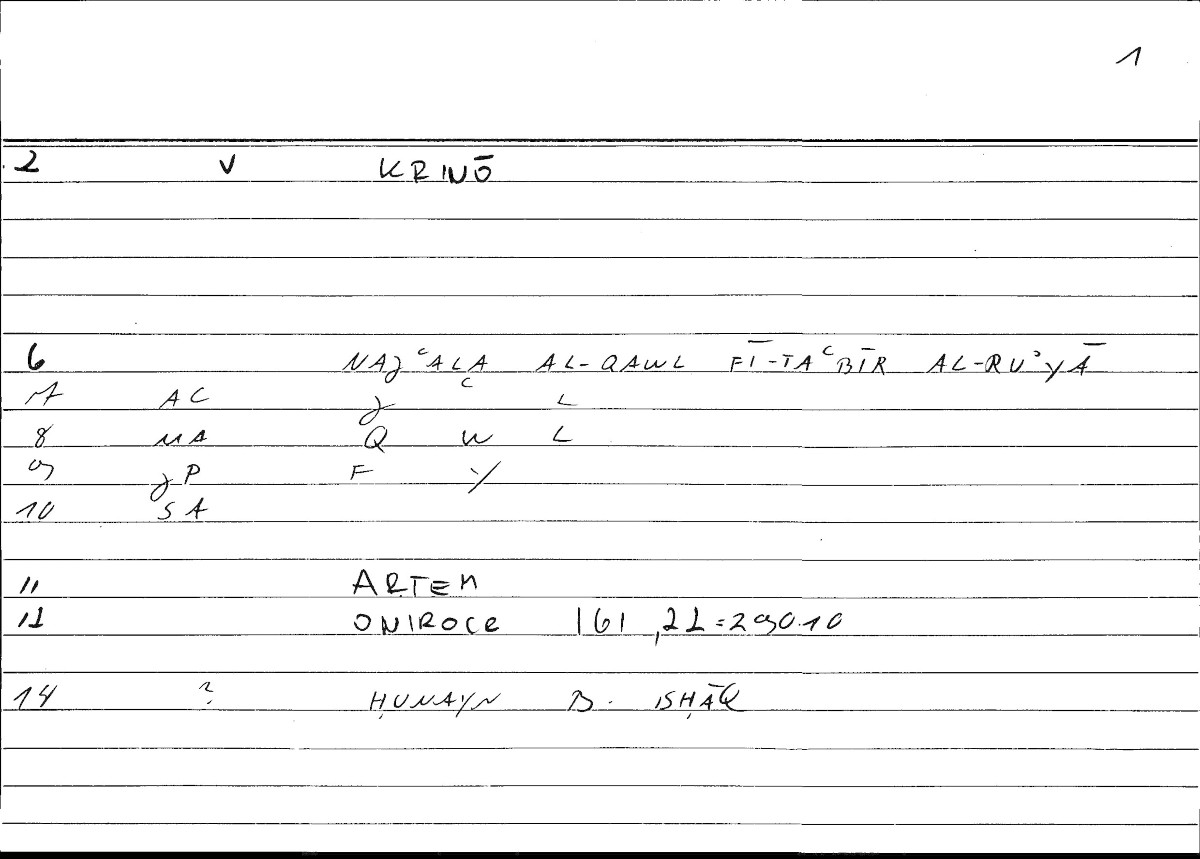 1
2 V KRINŌ
6 NAJʿALA AL-QAWL FĪ-TAʿBĪR AL-RUʾYĀ
7 AC J ʿ L
8 MA Q W L
9 JP F Y
10 SA
11 ARTEM
12 ONIROCR 161,22=290.10
14 ? ḤUNAYN B. ISḤĀQ